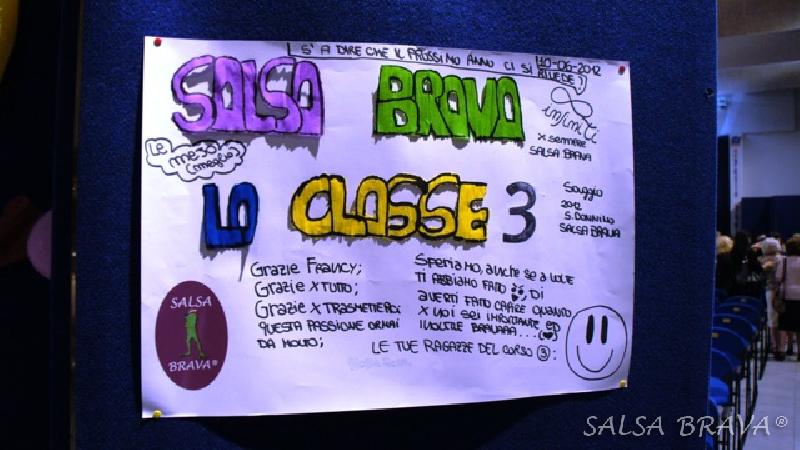 S'A DIRE CHE IL PROSSIMO ANNO CI SI RIVEDE)
10-06-2012
SALSA BRAVA
infiniti
x sempre
SALSA BRAVA
LE
LA CLASSE 3
Saggio
2012
S. DONNINO
SALSA BRAVA
Grazie Francy;
Grazie X TUTTO;
Grazie X TRASMETTERCI
QUESTA PASSIONE ORMAI
DA MOLTO;
SPERIAMO, anche se a VOLTE
TI ABBIAMO FATTO DI
AVERTI FATTO CAPIRE QUANTO
X NOI SEI IMPORTANTE ED
INOLTRE BRAVAAA...
LE TUE RAGAZZE DEL CORSO 3:
SALSA
BRAVA®
SALSA BRAVA®